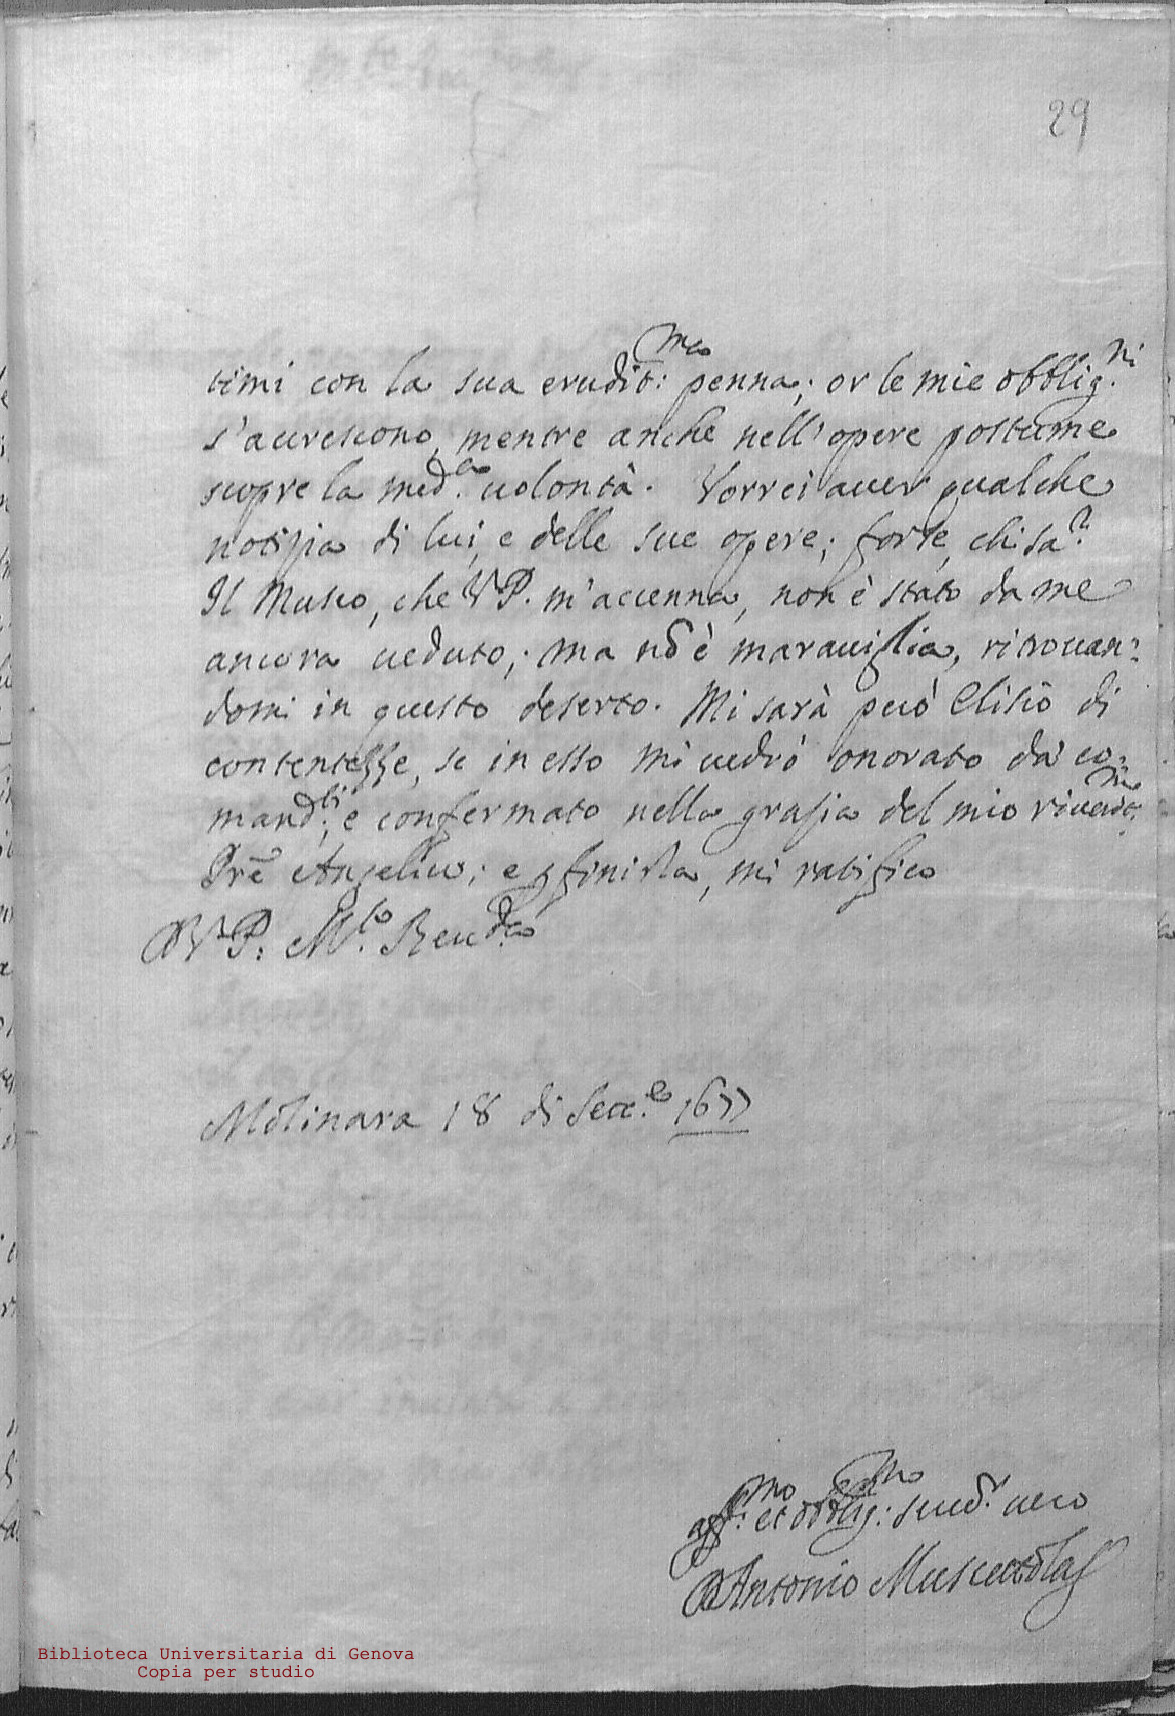 29
timi con la sua erudit:ma penna; or le mie obblig.ni
s'accrescono, mentre anche nell'opere postume
scopre la med.a uolontà. Vorrei auer qualche
notizia di lui, e delle sue opere; forse, chi sa?
Il Museo, che V.P. m'accenna, non è stato da me
ancora ueduto; ma nō è marauiglia, ritrouan=
domi in questo deserto. Mi sarà però Elisio di
contentezze, se in esso mi uedrò onorato da' co=
mand.ti, e confermato nella grazia del mio riuerit.mo
Prē Angelico; e finirla, mi ratifico
D V.P. M.to Reu.da
Molinara 18 di Sett.e 1677
aff.mo et obblig.mo seru.r uero
D Antonio Muscettola
Biblioteca Universitaria di Genova
Copia per studio